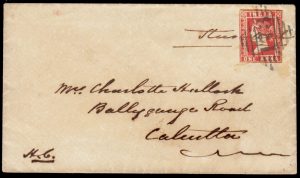 INDIA
Mrs. Charlotte Hallock
Ballygunge Road
Calcutta
ONE ANNA